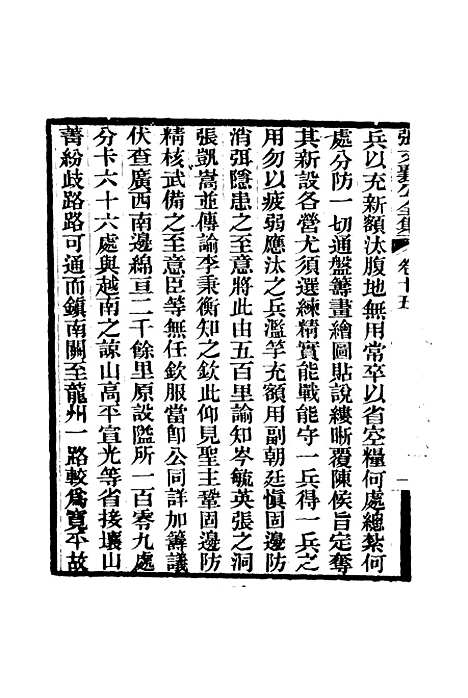 張文襄公全集 卷十五 一
兵以充新額汰腹地無用常卒以省空糧何處總紮何
處分防一切通盤籌畫繪圖貼說縷晰覆陳候旨定奪
其新設各營尤須選練精實能戰能守一兵得一兵之
用勿以疲弱應汰之兵濫竽充額用副朝廷慎固邊防
消弭隱患之至意將此由五百里諭知岑毓英張之洞
張凱嵩並傳諭李秉衡知之欽此仰見聖主鞏固邊防
精核武備之至意臣等無任欽服當卽公同詳加籌議
伏查廣西南邊綿亘二千餘里原設隘所一百零九處
分卡六十六處與越南之諒山高平宣光等省接壤山
菁紛歧路路可通而鎮南關至龍州一路較爲寬平故